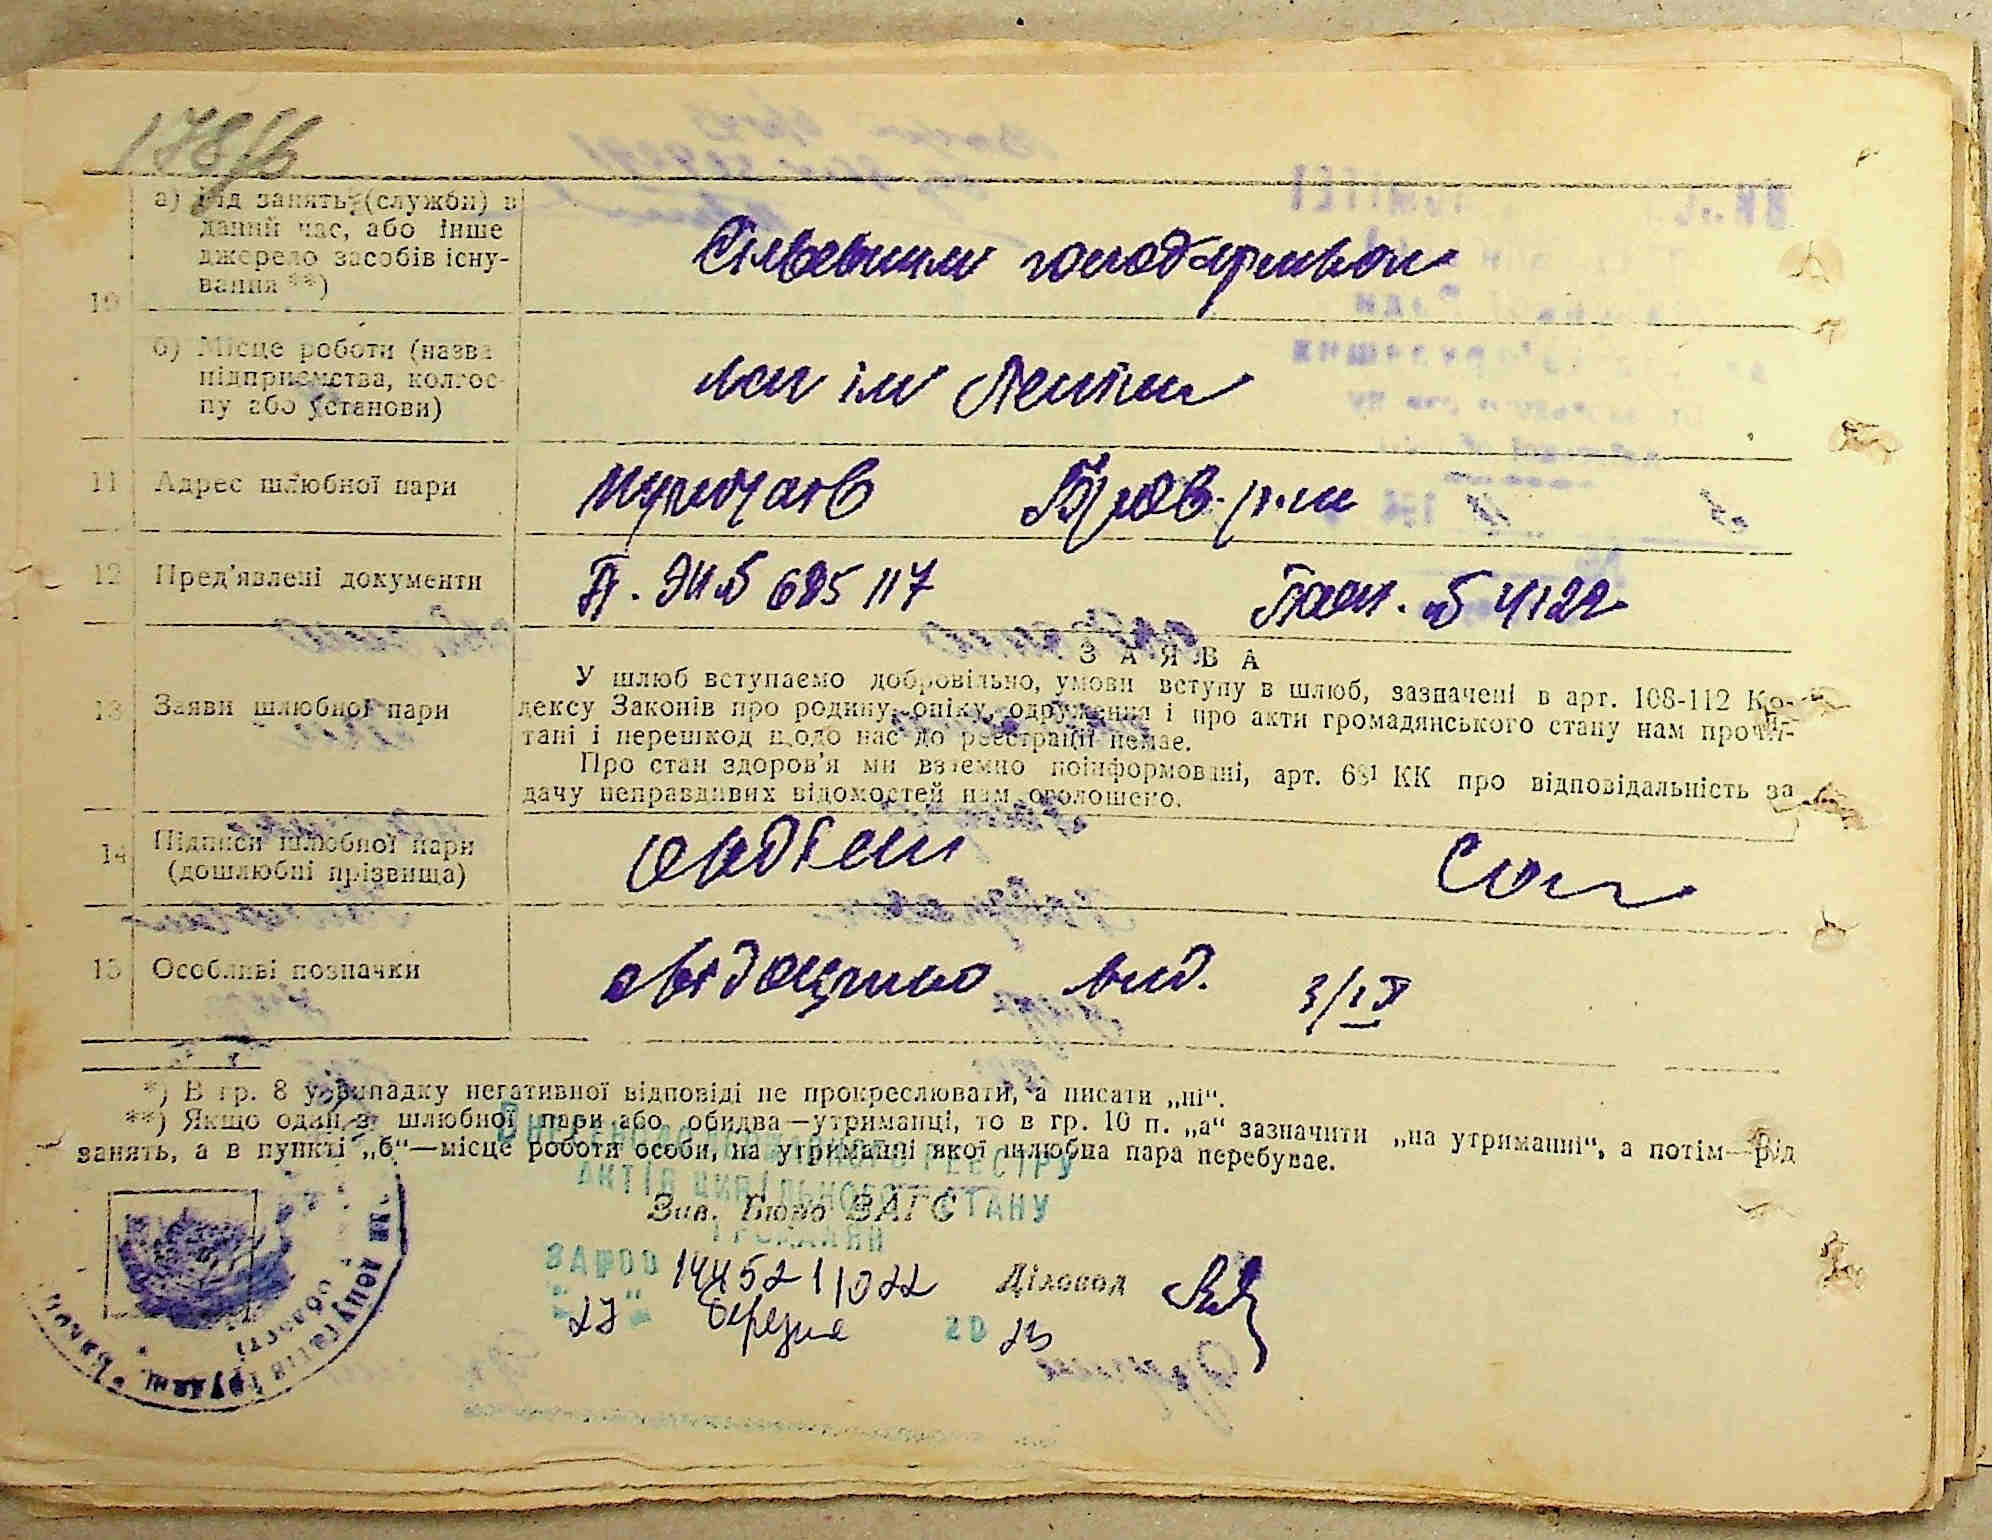 178/б
10
а) Рід занять (службн) в
даний час, або інше
джерело засобів існу-
вання **)
Сільським господарством
б) Місце роботи (назва
підприємства, колгос-
пу або установи)
ім Леніна
11 Адрес шлюбної пари
Бров. р-ну
12 Пред'явлені документи
П. № 685117 Пасп. № 4122
13 Заяви шлюбної пари
ЗАЯВА
У шлюб вступаємо добровільно, умови вступу в шлюб, зазначені в арт. 108-112 Ко-
дексу Законів про родину, опіку, одруження і про акти громадянського стану нам прочи-
тані і перешкод щодо нас до реєстрації немає.
Про стан здоров'я ми взаємно поінформовані, арт. 68¹ КК про відповідальність за
дачу неправдивих відомостей нам оголошено.
14 Підписи шлюбної пари
(дошлюбні прізвища)
15 Особливі позначки
свідоцтво вид. 3/IV
*) В гр. 8 у випадку негативної відповіді не прокреслювати, а писати „ні“.
**) Якщо один з шлюбної пари або обидва—утриманці, то в гр. 10 п. „а“ зазначити „на утриманні“, а потім—рід
занять, а в пункті „б“—місце роботи особи, на утриманні якої шлюбна пара перебуває.
ДЕРЖАВНОГО РЕЄСТРУ
АКТІВ ЦИВІЛЬНОГО СТАНУ
ГРОМАДЯН
Зав. Бюро ЗАГС
ЗА №00 144521022 Діловод
"27" березня 20 23